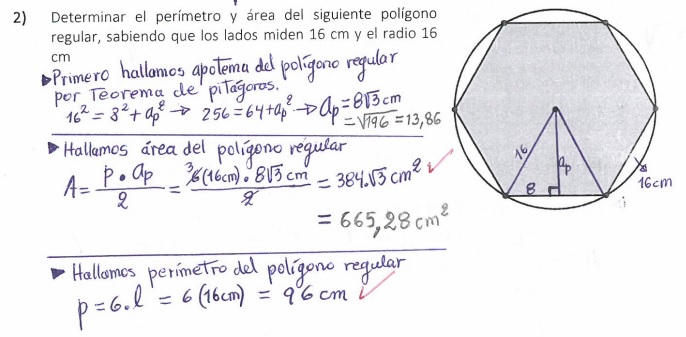 2) Determinar el perímetro y área del siguiente polígono
regular, sabiendo que los lados miden 16 cm y el radio 16
cm
▸Primero hallamos apotema del polígono regular
por Teorema de pitágoras.
16² = 8² + ap² → 256 = 64 + ap² → ap = 8√3 cm
= √196 = 13,86
▸ Hallamos área del polígono regular
A = p • ap / 2 = 6(16cm) • 8√3 cm / 2 = 384.√3 cm²
3
= 665,28 cm²
▸ Hallamos perímetro del polígono regular
p = 6.l = 6(16cm) = 96 cm
16
ap
8
16cm